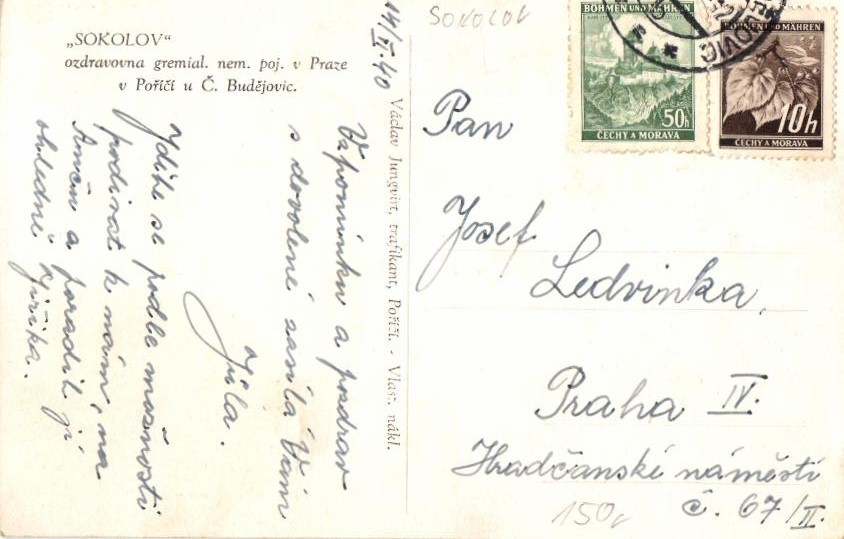 „SOKOLOV“
ozdravovna gremial. nem. poj. v Praze
v Poříčí u Č. Budějovic.
14/X. 40
Vzpomínku a pozdrav
s dovolené zasílá Vám
Jüla.
Jděte se podle možnosti
podívat k nám, na
a poradit jí
ohledně Jiříka.
Václav Jungvirt, trafikant, Poříčí. - Vlast. nákl.
SOKOLOV
BÖHMEN UND MÄHREN
50h
ČECHY A MORAVA
BÖHMEN UND MÄHREN
10h
ČECHY A MORAVA
Pan
Josef
Ledvinka,
Praha IV.
Hradčanské náměstí
č. 67/II.
150,